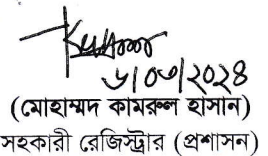 ৬/০৩/২০২৪
(মোহাম্মদ কামরুল হাসান)
সহকারী রেজিস্ট্রার (প্রশাসন)